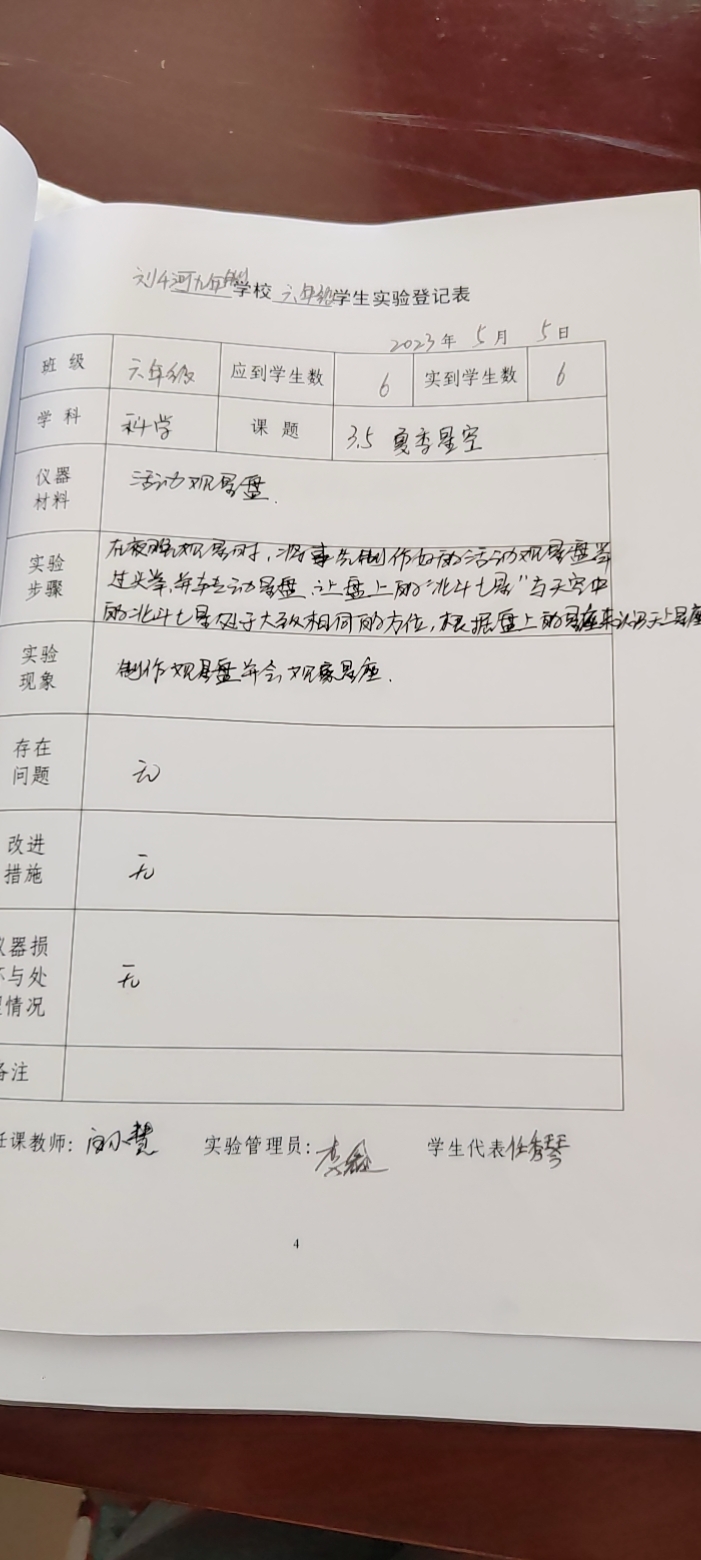 刘家河九年制学校六年级学生实验登记表
2023年 5月 5日
班 级 六年级 应到学生数 6 实到学生数 6
学 科 科学 课 题 3.5 夏季星空
仪器材料 活动观星盘.
实验步骤 在夜晚观星时，将事先制作好的活动观星盘举
过头举，并转动星盘，让盘上的“北斗七星”与天空中
的北斗七星处于大致相同的方位，根据盘上的星座来认识天上星座
实验现象 制作观星盘并会观察星座.
存在问题 无
改进措施 无
仪器损坏与处理情况 无
备注
任课教师: 实验管理员: 李 学生代表 任秀琴
4